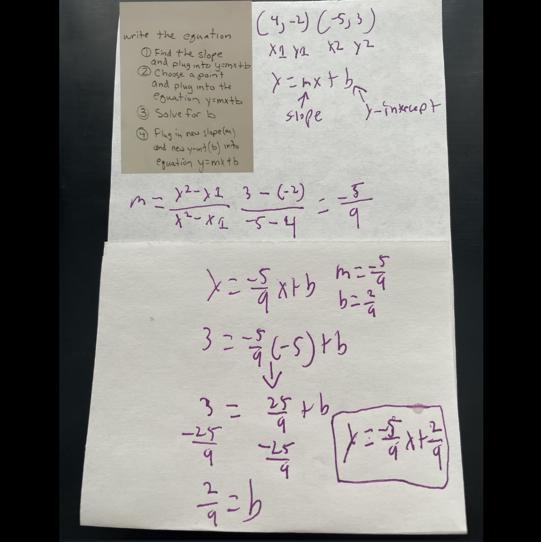 write the equation
① Find the slope
and plug into y=mx+b
② Choose a point
and plug into the
equation y=mx+b
③ Solve for b
④ Plug in new slope(m)
and new y-int(b) into
equation y=mx+b
(4,-2) (-5,3)
x1 y1 x2 y2
y=mx+b
slope y-intercept
m = y2-y1/x2-x1 3-(-2)/-5-4 = -5/9
y = -5/9 x+b m=-5/9
b=2/9
3 = -5/9 (-5)+b
3 = 25/9 +b
-25/9 -25/9
2/9 = b
y = -5/9 x+2/9